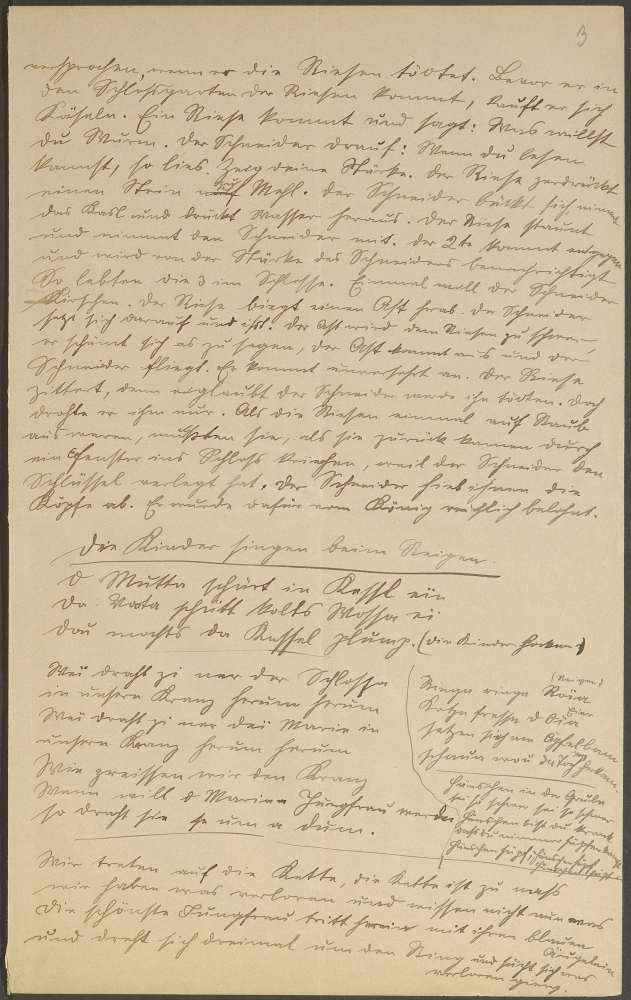 3
versprochen, wenn er die Riesen tödtet. Bevor er in
den Schloßgarten der Riesen kommt, kauft er sich
Käsaln. Ein Riese kommt und sagt: Was willst
du Wurm. Der Schneider drauf: Wenn du lesen
kannst, so lies. Zeig deine Stärke. Der Riese zerdrückt
einen Stein auf Mehl. Der Schneider bückt sich, nimmt
das Kasl und drückt Wasser heraus. Der Riese staunt
und nimmt den Schneider mit. Der 2te kommt entgegen
und wird von der Stärke des Schneiders benachrichtigt
So lebten die 3 im Schlosse. Einmal woll der Schneider
Kirschen. Der Riese biegt einen Ast herab. Der Schneider
setzt sich darauf und ißt. Der Ast wird dem Riesen zu schwer,
er schämt sich es zu sagen, der Ast kommt aus und der
Schneider fliegt. Er kommt unversehrt an. Der Riese
zittert, denn er glaubt der Schneider werde ihn tödten. Doch
drohte er ihm nur. Als die Riesen einmal auf Raub
aus waren, mußten sie, als sie zurück kamen durch
ein Fenster ins Schloß kriechen, weil der Schneider den
Schlüssel verlegt hat. Der Schneider hieb ihnen die
Köpfe ab. Er wurde dafür vom König reichlich belohnt.
Die Kinder singen beim Reigen
D Mutta schürt in Kessl ein
Da Vota schütt kolts Wossa ei
Dau mochts da Kessel plump. (die Kinder hocken)
Wei draht zi ner der Schlosser
in unsern Kranz herum herum
Wei draht zi ner dei Marie in
unsern Kranz herum herum
Wie zreissen mir den Kranz
Wenn will d Marie Jungfrau werden
so draht sie se um a dum.
(Reigen)
Ringa ringa Roia
Katzn fressn d Oia
Eier
setzen sich am Opfelbam
schaun
Häuschen in der Grube
Häschen bist du krank
Häschen hüpf, Häschen hüpf
Wir treten auf die Kette, die Kette ist zu naß
wir haben was verloren und wissen nicht nun was
Die schönste Jungfrau tritt herein mit ihren blauen
Äugelein
und dreht sich dreimal um den Ring und sucht sich was
verloren ging.